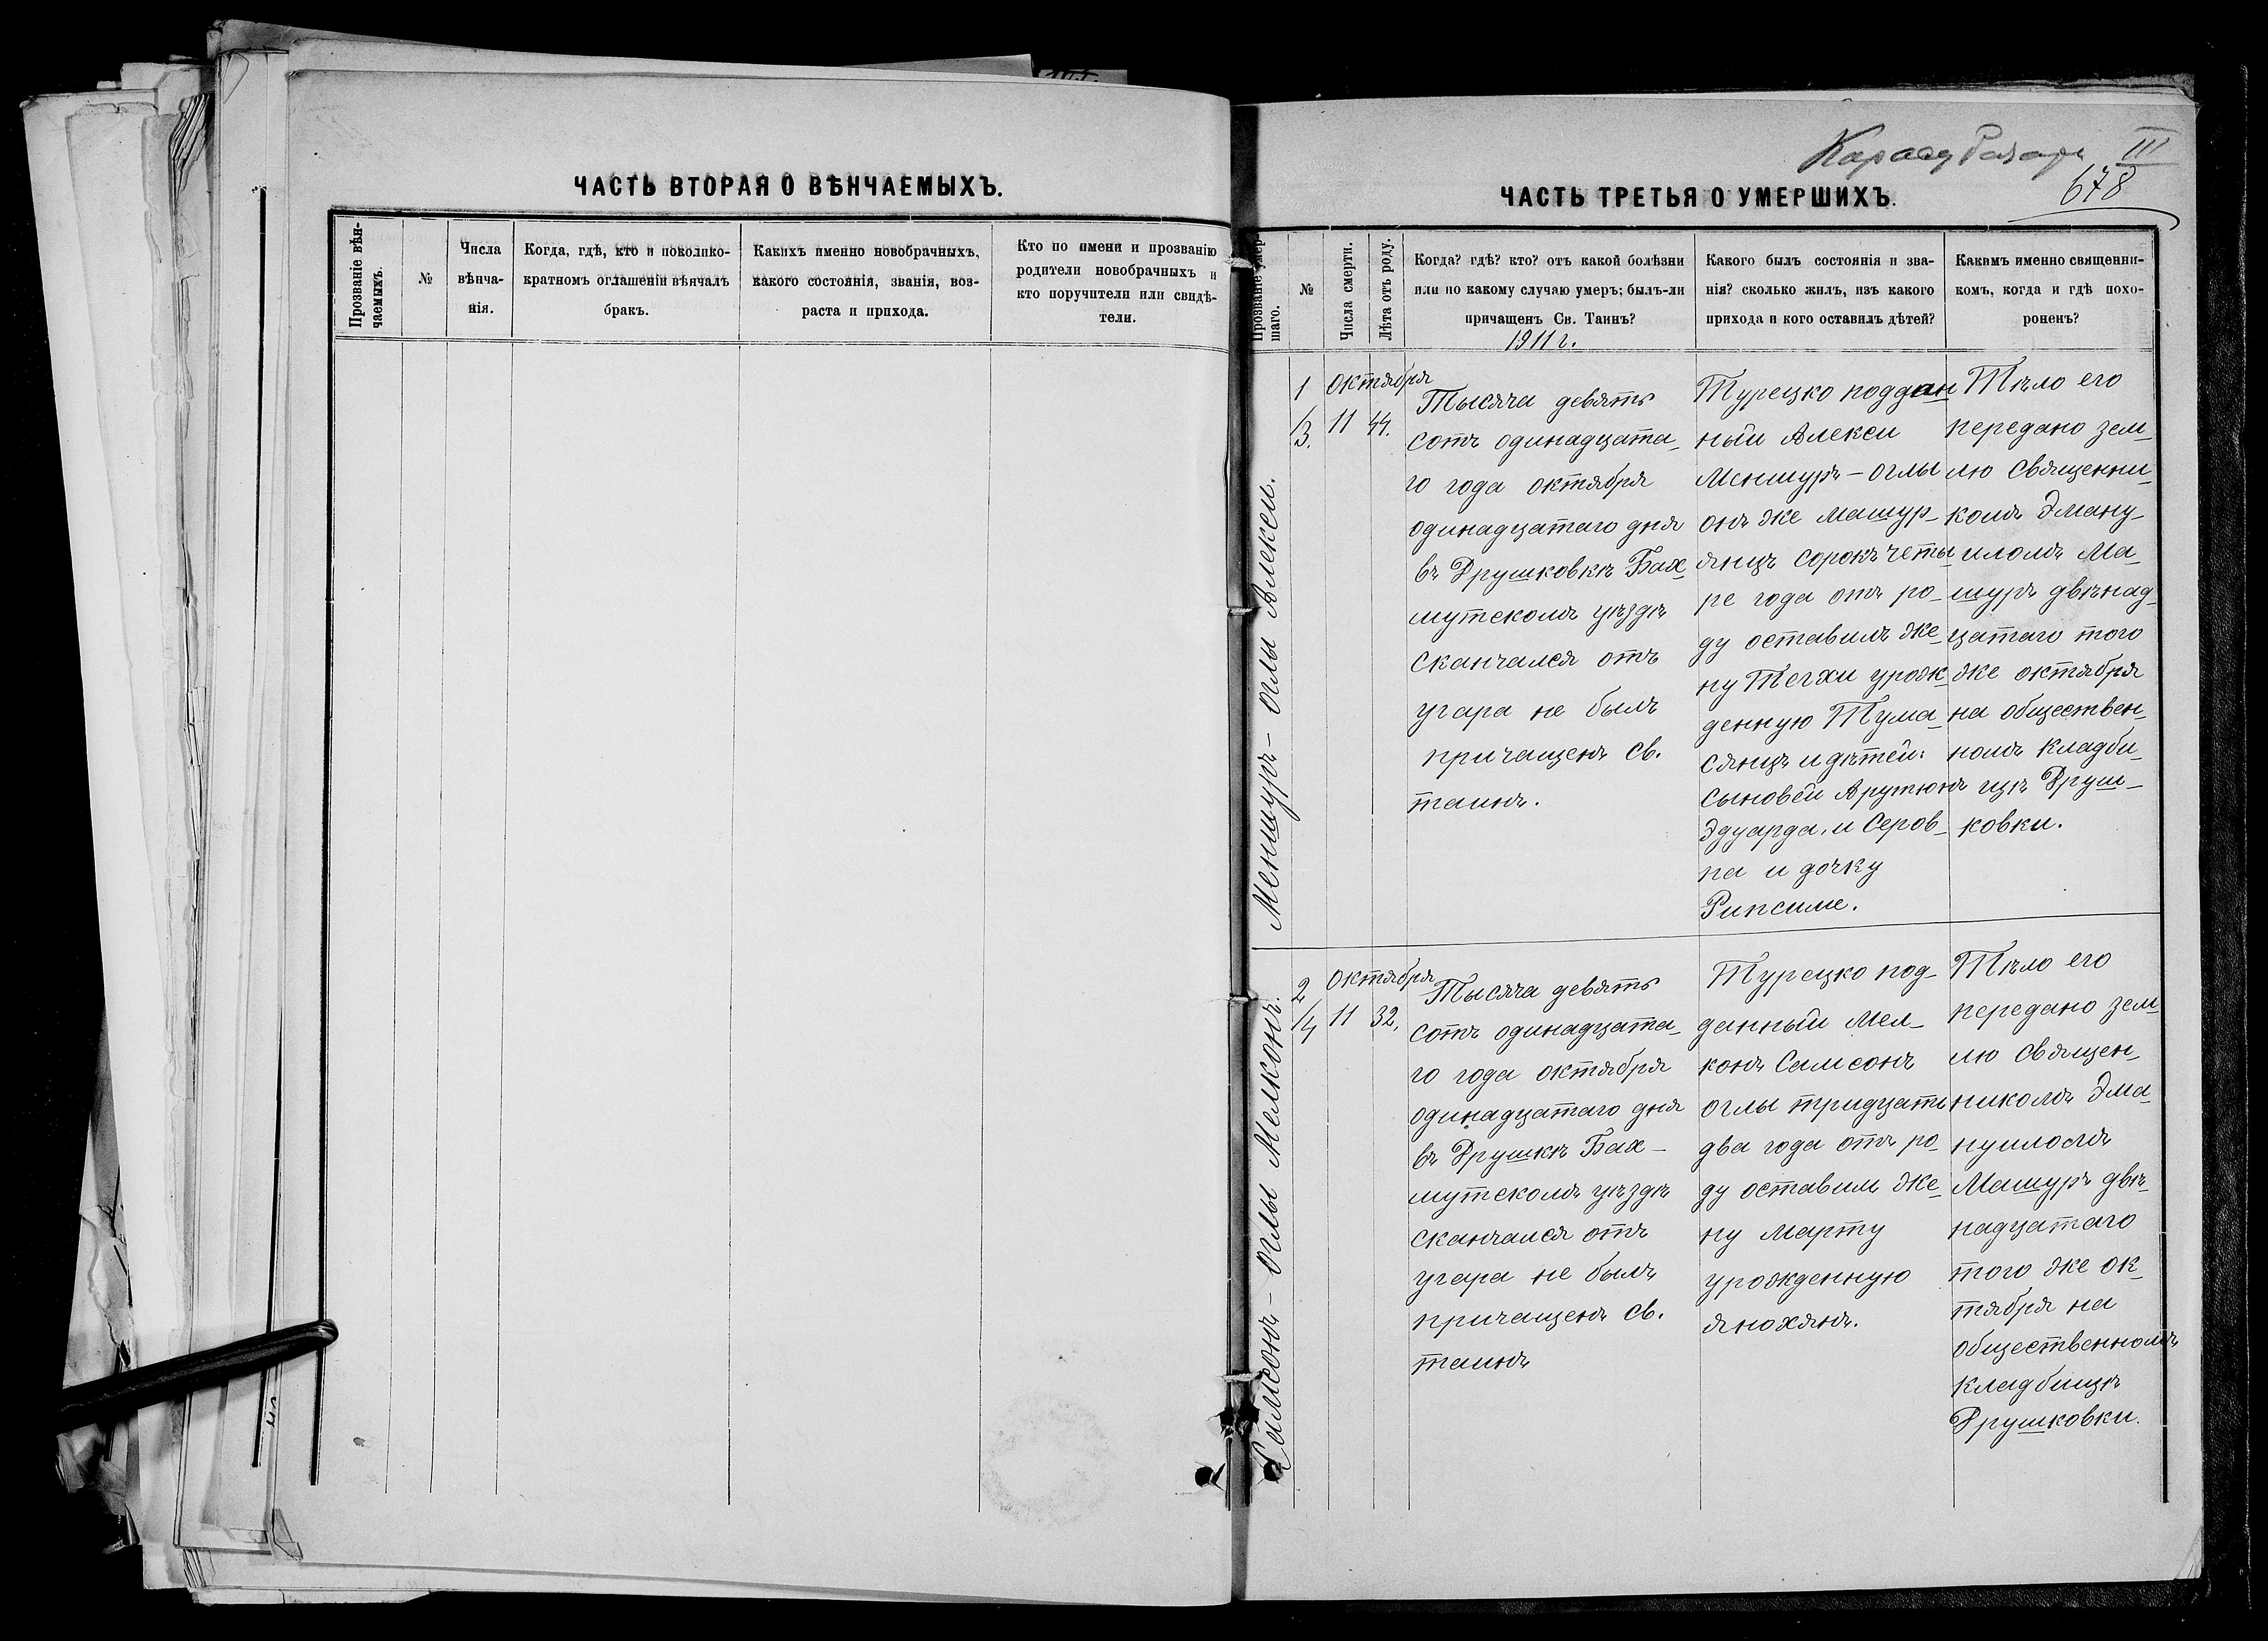 ЧАСТЬ ВТОРАЯ О ВѢНЧАЕМЫХЪ.
Прозваніе вѣн-
чаемыхъ.
№
Числа
вѣнча-
нія.
Когда, гдѣ, кто и поколико-
кратномъ оглашеніи вѣнчалъ
бракъ.
Какихъ именно новобрачныхъ,
какого состоянія, званія, воз-
раста и прихода.
Кто по имени и прозванію
родители новобрачныхъ и
кто поручители или свидѣ-
тели.
Карасубазаръ III
678
ЧАСТЬ ТРЕТЬЯ О УМЕРШИХЪ.
Прозваніе умер-
шаго.
№
Числа смерти.
Лѣта отъ роду.
Когда? гдѣ? кто? отъ какой болѣзни
или по какому случаю умеръ; былъ-ли
причащенъ Св. Таинъ?
Какого былъ состоянія и зва-
нія? сколько жилъ, изъ какого
прихода и кого оставилъ дѣтей?
Какимъ именно священни-
комъ, когда и гдѣ похо-
роненъ?
1911 г.
Меншуръ-оглы Алексы.
1
/3.
октября
11
44.
Тысяча девять
сотъ одинадцата-
го года октября
одинадцатаго дня
въ Друшковкѣ Бах-
мутскомъ уѣздѣ
сканчался отъ
угара не былъ
причащенъ св.
таинъ.
Турецко поддан
ный Алекси
Меншуръ-оглы
онъ же Машур-
янцъ сорокъ четы
ре года отъ ро-
ду оставилъ же-
ну Тегхи урож-
денную Тума-
сянцъ и дѣтей:
сыновей Арутюнъ
Эдуарда, и Серов-
па и дочку
Рипсиме.
Тѣло его
передано зем-
лю священни-
комъ Эману-
иломъ Ма-
шуръ двѣнад-
цатаго того
же октября
на обществен-
номъ кладби-
щѣ Друш-
ковки.
Самсонъ-оглы Мелконъ.
2
/4
октября
11
32,
Тысяча девять
сотъ одинадцата-
го года октября
одинадцатаго дня
въ Друшкѣ Бах-
мутскомъ уѣздѣ
сканчался отъ
угара не былъ
причащенъ св.
таинъ
Турецко под-
данный Мел-
конъ Самсонъ
оглы тридцать
два года отъ ро-
ду оставилъ же-
ну Марту
урожденную
Янохянъ.
Тѣло его
передано зем-
лю священ-
никомъ Эма-
нуиломъ
Машуръ двѣ-
надцатаго
того же ок-
тября на
общественномъ
кладбищѣ
Друшковки.